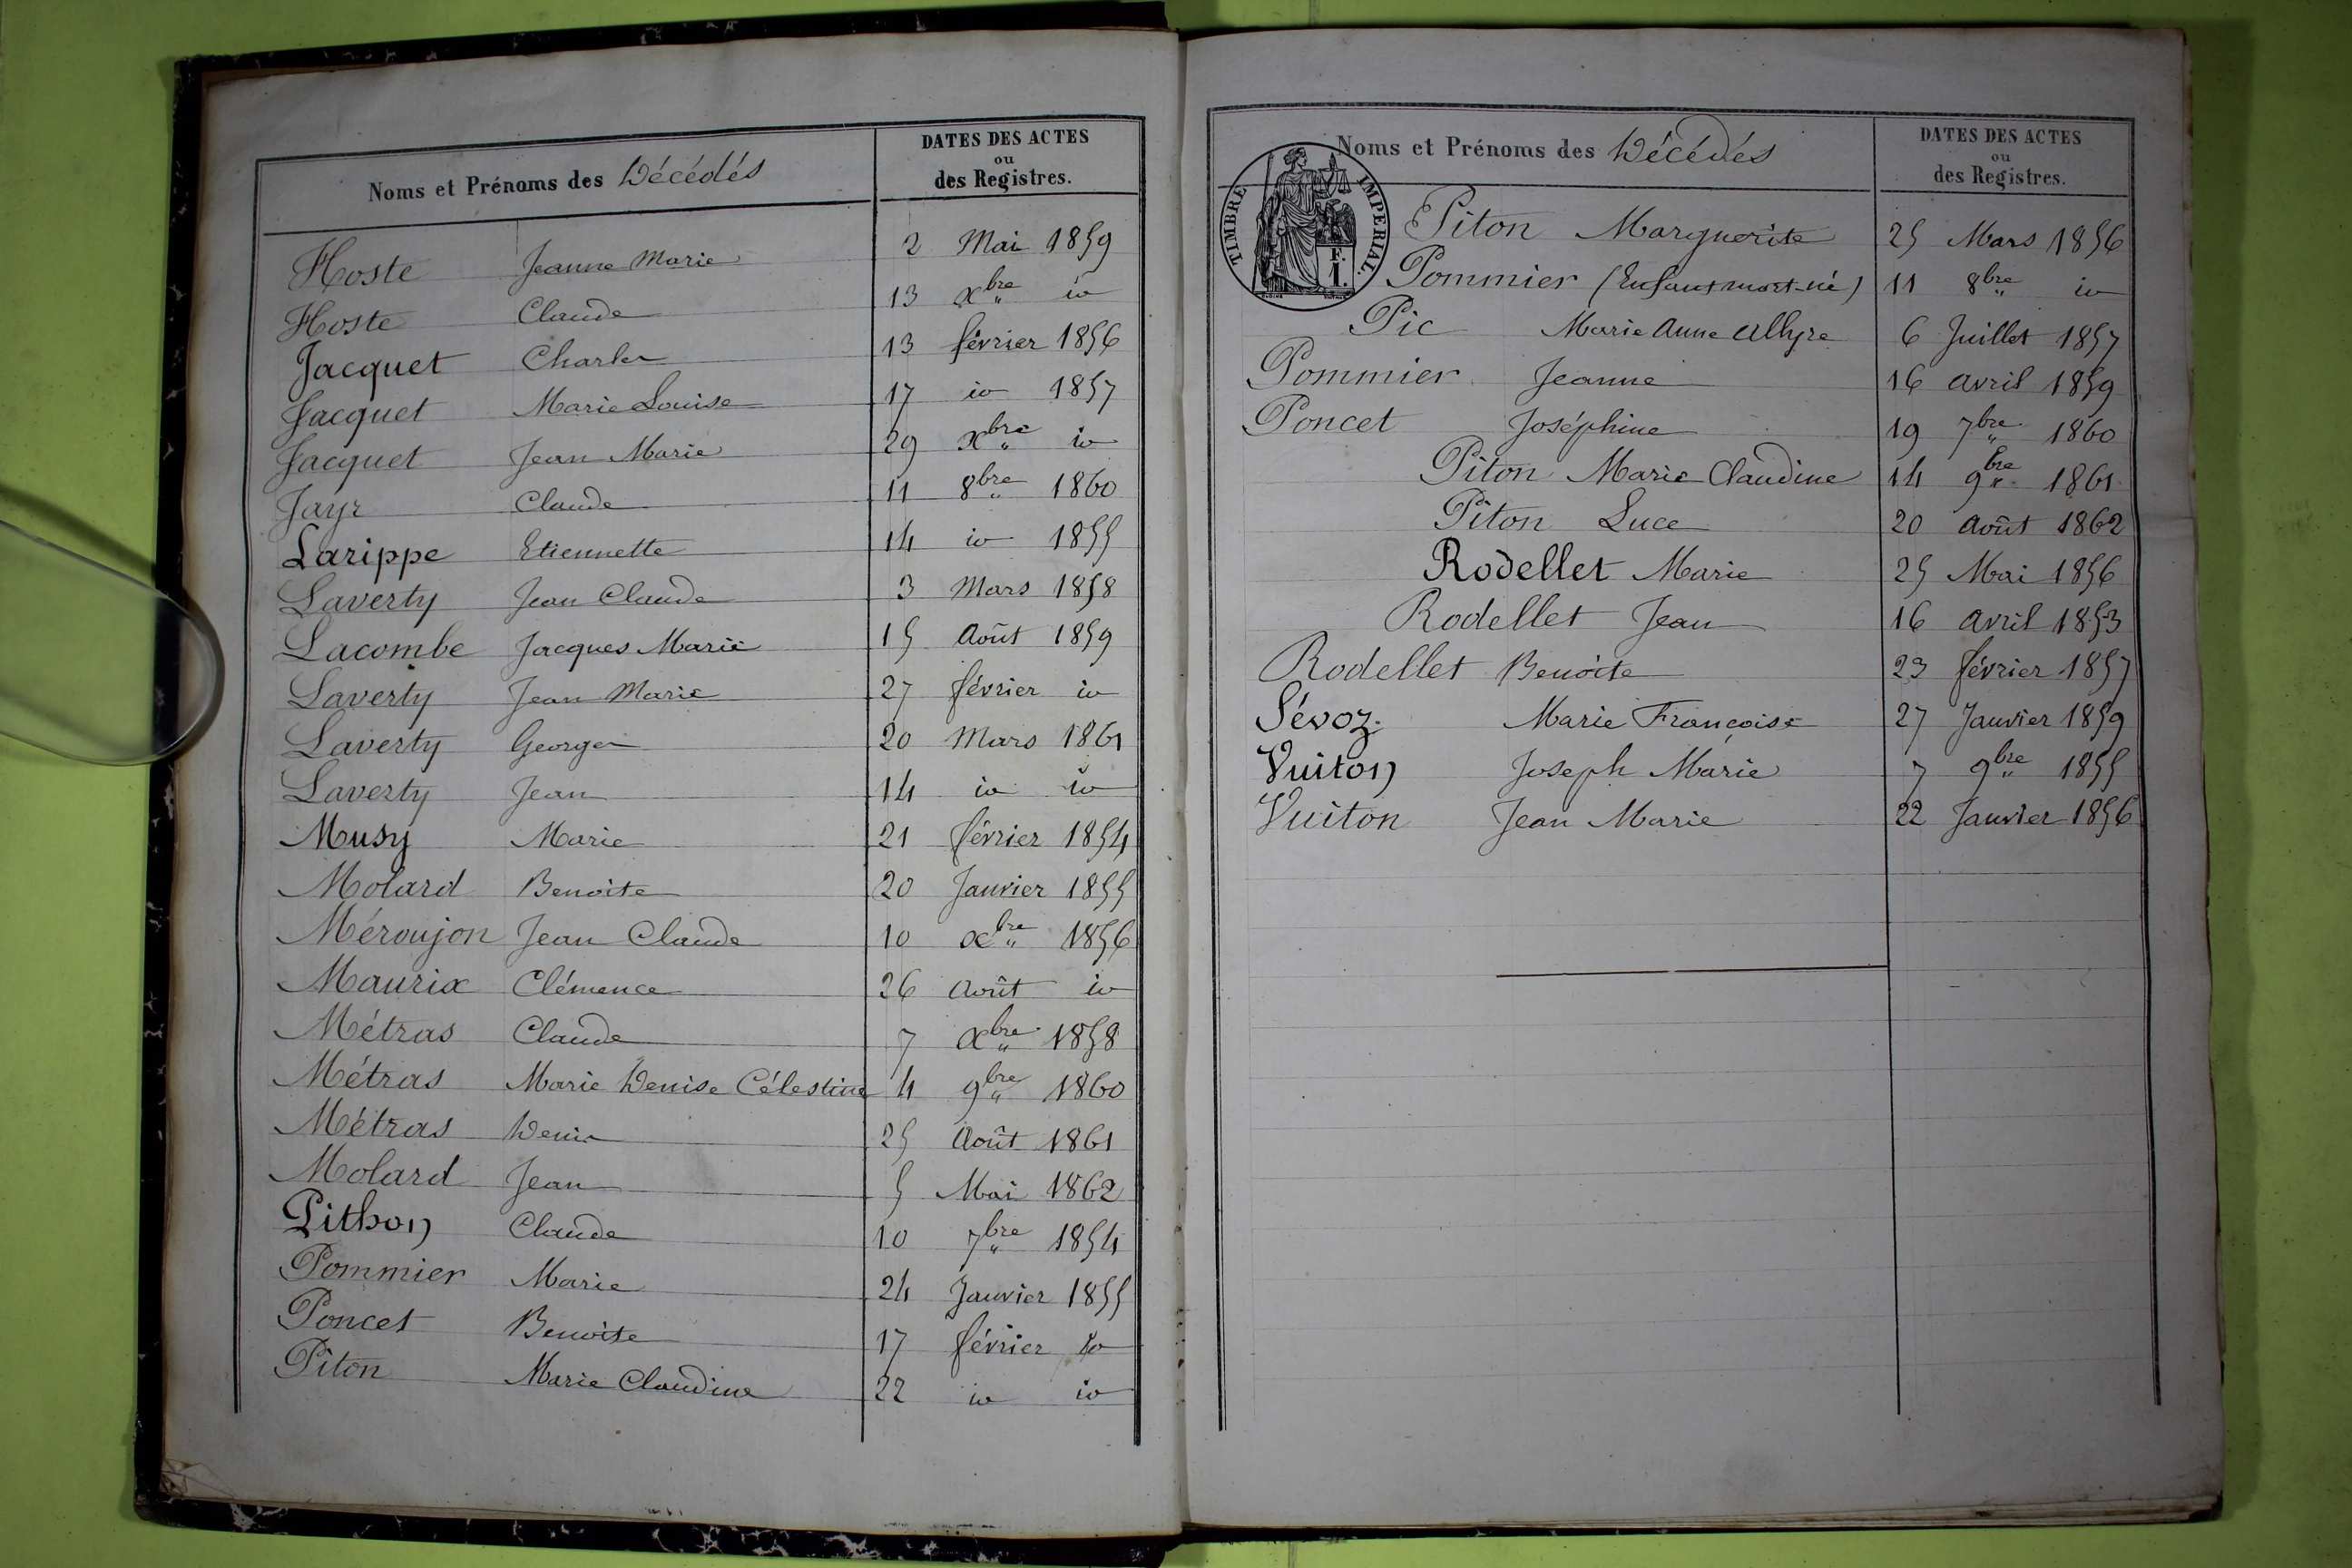 Noms et Prénoms des Décédés
DATES DES ACTES
ou
des Registres.
Hoste Jeanne Marie 2 Mai 1859
Hoste Claude 13 xbre io
Jacquet Charles 13 février 1856
Jacquet Marie Louise 17 io 1857
Jacquet Jean Marie 29 xbre io
Jayr Claude 11 8bre 1860
Larippe Etiennette 14 io 1855
Laverty Jean Claude 3 Mars 1858
Lacombe Jacques Marie 15 Août 1859
Laverty Jean Marie 27 février io
Laverty Georges 20 Mars 1861
Laverty Jean 14 io io
Musy Marie 21 février 1854
Molard Benoite 20 Janvier 1855
Méroujon Jean Claude 10 xbre 1856
Maurix Clémence 26 Août io
Métras Claude 7 xbre 1858
Métras Marie Denise Célestine 4 9bre 1860
Métras Denis 25 Août 1861
Molard Jean 5 Mai 1862
Pithon Claude 10 7bre 1854
Pommier Marie 24 Janvier 1855
Poncet Benoite 17 février io
Piton Marie Claudine 22 io io
Noms et Prénoms des Décédés
DATES DES ACTES
ou
des Registres.
TIMBRE IMPERIAL.
F.
1.
Piton Marguerite 25 Mars 1856
Pommier (Enfant mort-né) 11 8bre io
Pic Marie Anne 6 Juillet 1857
Pommier Jeanne 16 Avril 1859
Poncet Joséphine 19 7bre 1860
Piton Marie Claudine 14 9bre 1861
Piton Luce 20 Août 1862
Rodellet Marie 25 Mai 1856
Rodellet Jean 16 Avril 1853
Rodellet Benoite 23 février 1857
Sévoz Marie Françoise 27 Janvier 1859
Vuiton Joseph Marie 7 9bre 1855
Vuiton Jean Marie 22 Janvier 1856